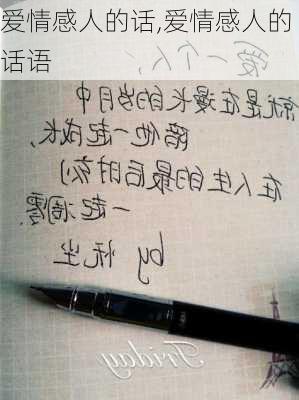 爱情感人的话,爱情感人的
话语
爱一个人,
就是在漫长的岁月中
陪他一起成长,
在人生的最后时刻
一起凋零.
by
Friday